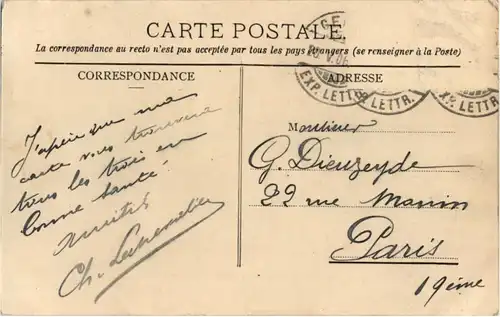 CARTE POSTALE.
La correspondance au recto n'est pas acceptée par tous les pays étrangers (se renseigner à la Poste)
CORRESPONDANCE
ADRESSE
EXP. LETTR.
EXP. LETTR.
Monsieur
G. Dieuzeyde
22 rue Manin
Paris
19ème
J'espère que ma
carte vous trouvera
tous les trois en
bonne santé.
Amitiés
Ch.